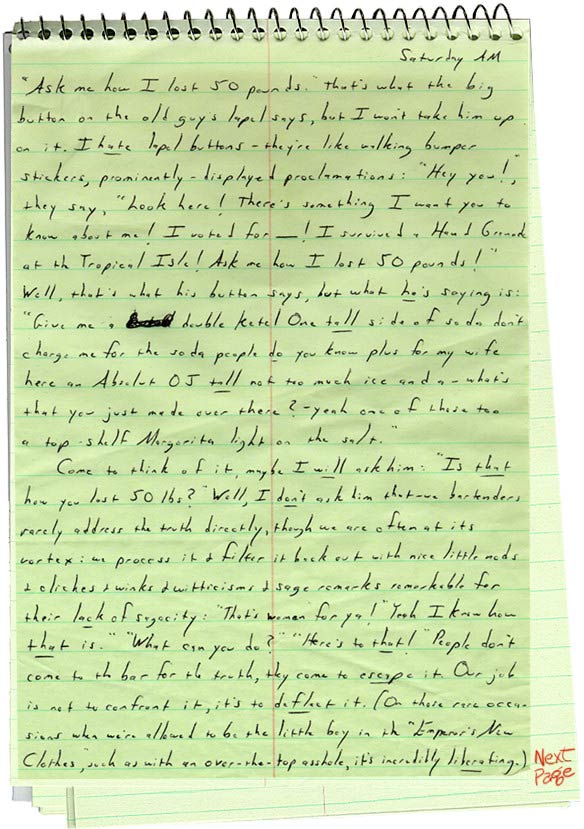 Saturday AM
"Ask me how I lost 50 pounds." That's what the big
button on the old guy's lapel says, but I won't take him up
on it. I hate lapel buttons - they're like walking bumper
stickers, prominently-displayed proclamations: "Hey you!",
they say, "Look here! There's something I want you to
know about me! I voted for __! I survived a Hand Grenade
at th Tropical Isle! Ask me how I lost 50 pounds!"
Well, that's what his button says, but what he's saying is:
"Give me a double Ketel One tall side of soda don't
charge me for the soda people do you know plus for my wife
here an Absolut OJ tall not too much ice and a - what's
that you just made over there? - yeah one of those too
a top-shelf Margarita light on the salt."
Come to think of it, maybe I will ask him: "Is that
how you lost 50 lbs?" Well, I don't ask him that - we bartenders
rarely address the truth directly, though we are often at its
vortex: we process it & filter it back out with nice little nods
& cliches & winks & witticisms & sage remarks remarkable for
their lack of sagacity: "That's women for ya!" "Yeah I know how
that is." "What can you do?" "Here's to that!" People don't
come to the bar for the truth, they come to escape it. Our job
is not to confront it, it's to deflect it. (On those rare occa-
sions when we're allowed to be the little boy in the "Emperor's New
Clothes," such as with an over-the-top asshole, it's incredibly liberating.)
Next
Page